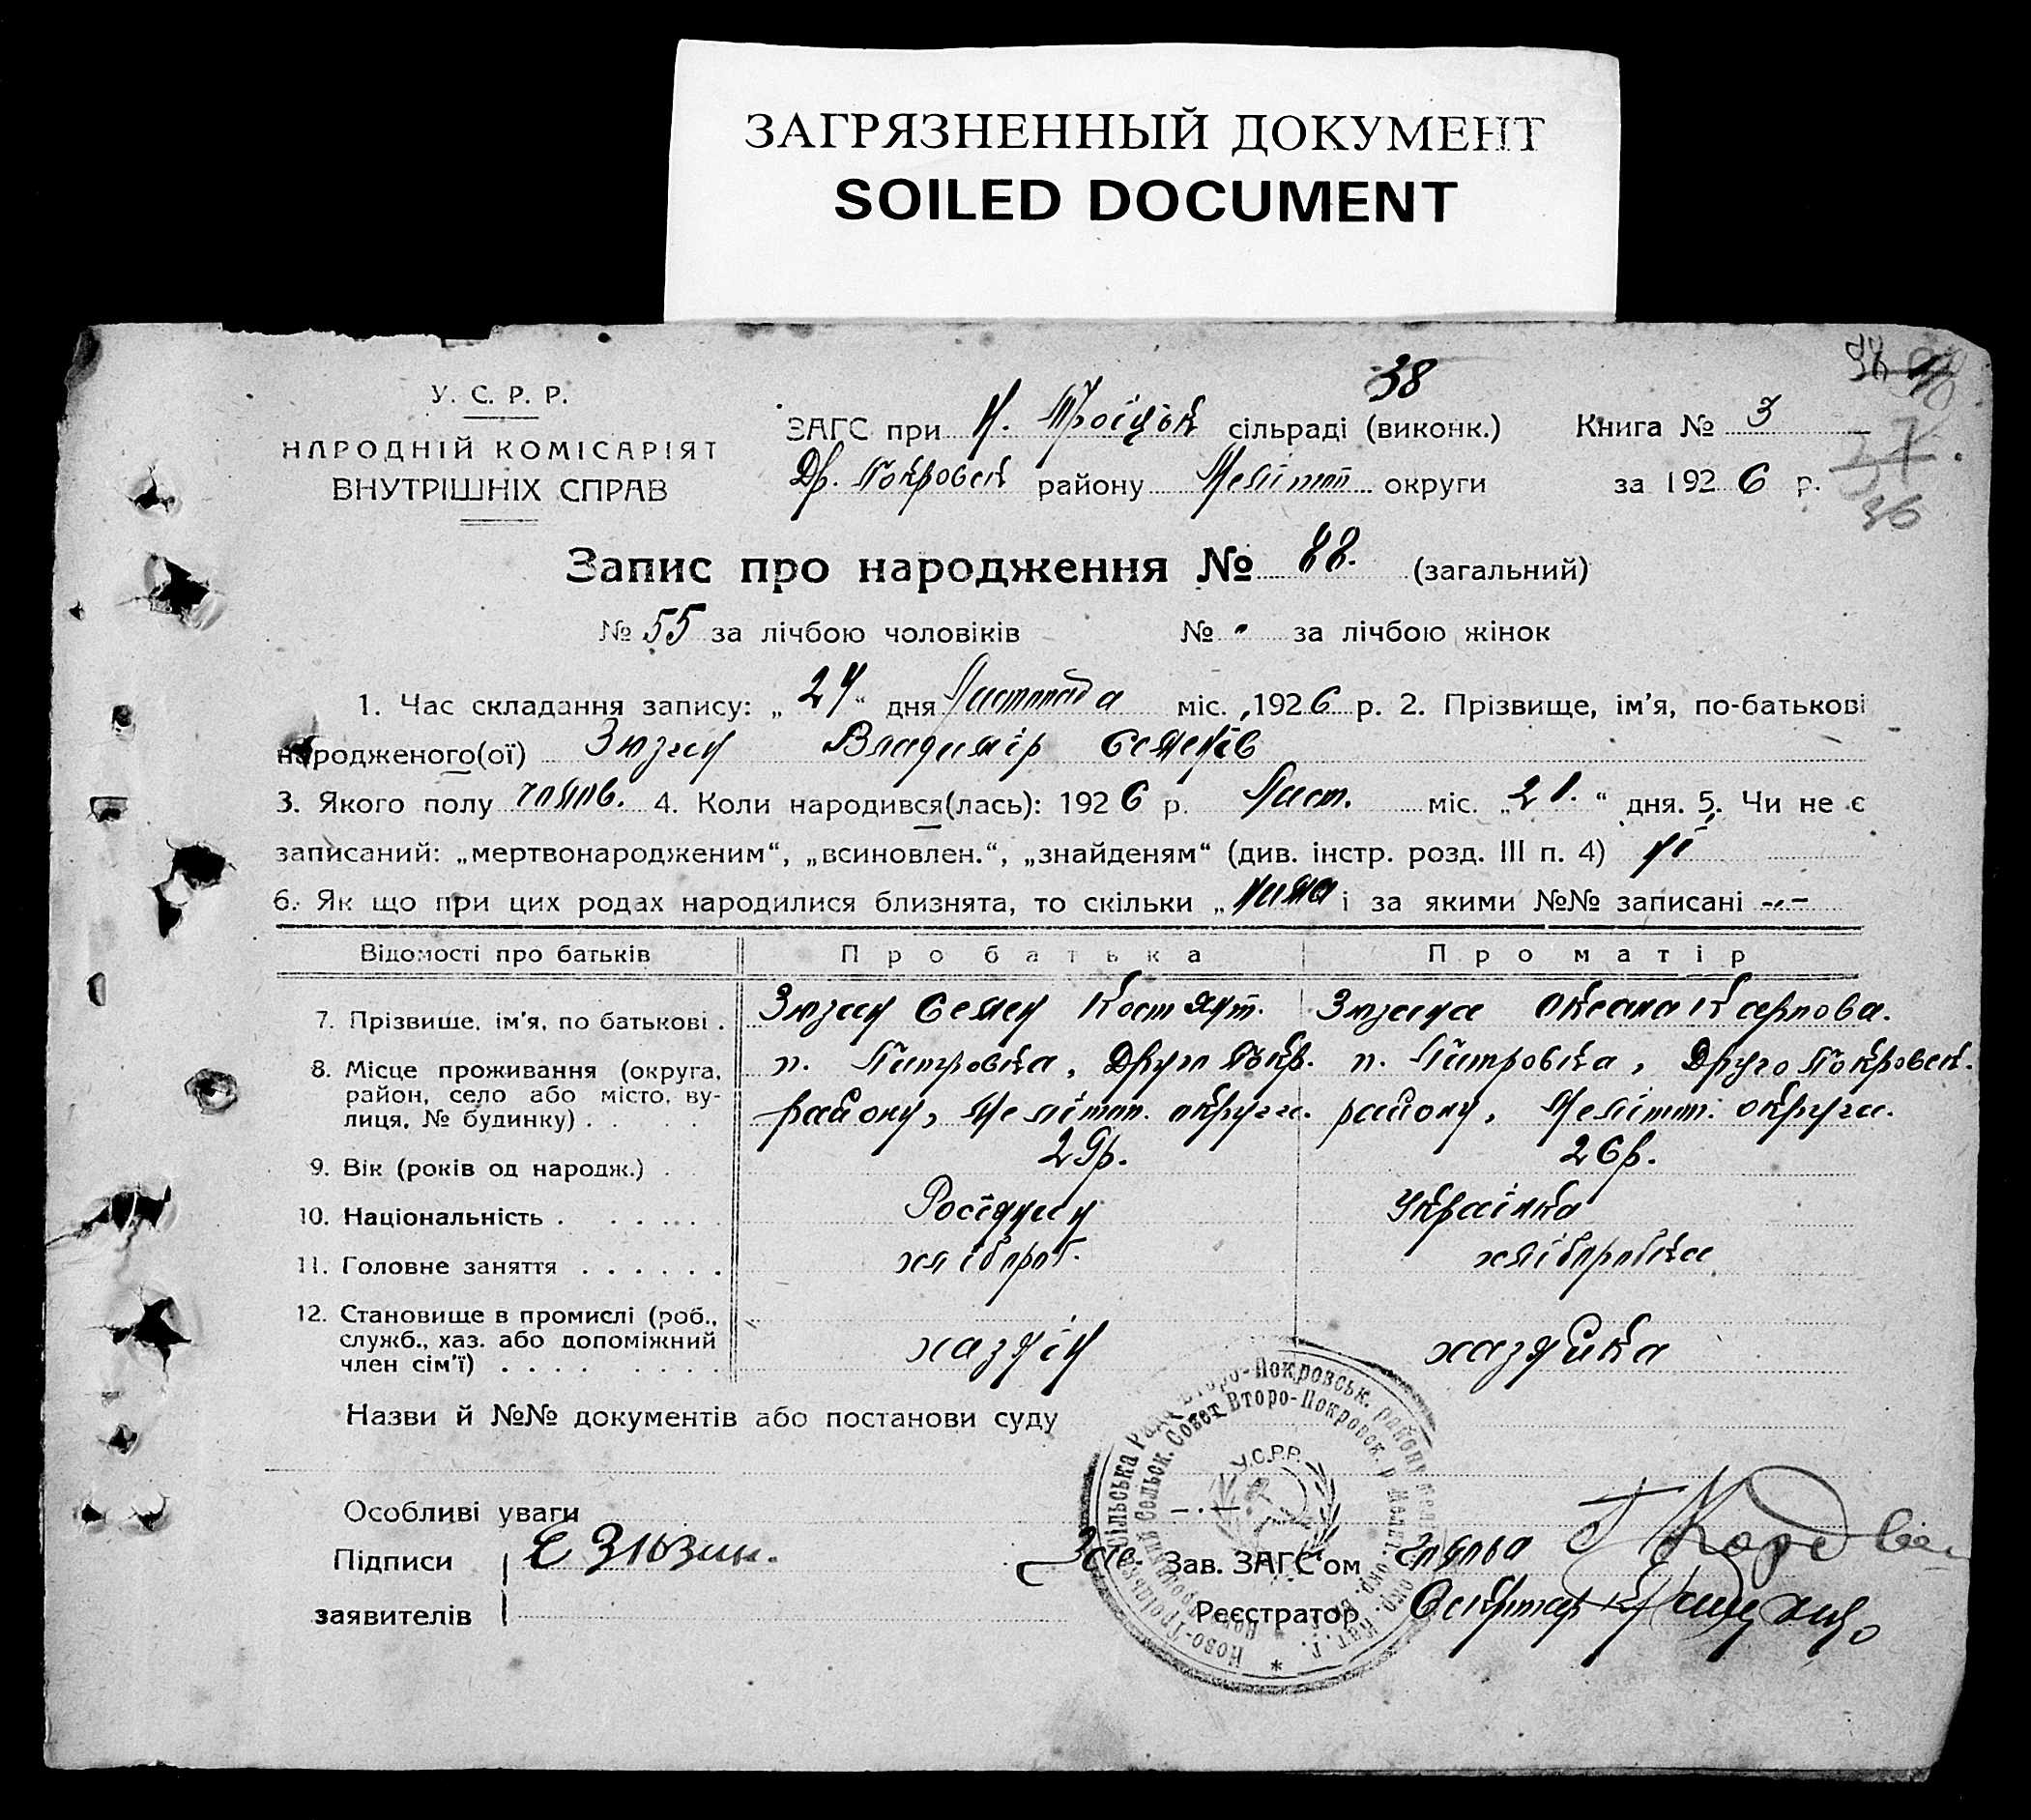 ЗАГРЯЗНЕННЫЙ ДОКУМЕНТ
SOILED DOCUMENT
38
У. С. Р. Р.
НАРОДНІЙ КОМІСАРІЯТ
ВНУТРІШНІХ СПРАВ
ЗАГС при Н. Троіцьк сільраді (виконк.) Книга № 3
Др. Покровск району Меліттоп округи за 1926 р.
36
Запис про народження № 88. (загальний)
№ 55 за лічбою чоловіків № за лічбою жінок
1. Час складання запису: „24“ дня Листопада міс. 1926 р. 2. Прізвище, ім'я, по-батькові
народженого(ої) Зюзин Владимір Семенів
3. Якого полу чолов. 4. Коли народився(лась): 1926 р. Лист. міс. „21.“ дня. 5. Чи не є
записаний: „мертвонародженим“, „всиновлен.“, „знайденям“ (див. інстр. розд. III п. 4) ні
6. Як що при цих родах народилися близнята, то скільки „нима і за якими №№ записані -.-
Відомості про батьків Про батька Про матір
7. Прізвище, ім'я, по батькові . Зюзин Семен Костянт. Зюзина Оксана Карпова.
8. Місце проживання (округа, район, село або місто, вулиця, № будинку) . . п. Питровка, Друго Покр. району, Меліттоп. округи. п. Питровка, Друго Покровськ. району, Меліттоп. округи.
9. Вік (років од народж.) . 29р. 26р.
10. Національність . . . . . . Росіянин Українка
11. Головне заняття . . . . . . хлібороб. хліборобка
12. Становище в промислі (роб., служб., хаз. або допоміжний член сім'ї) . . . . хазяїн хазяйка
Назви й №№ документів або постанови суду
Особливі уваги -.-
Підписи Є Зюзин. Зав. ЗАГС'ом Голова
заявителів Реєстратор Секретар
У.С.Р.Р.
Ново-Троїцьська Сільська Рада Второ-Покровськ. району
Сельск. Совет Второ-Покровск. р.